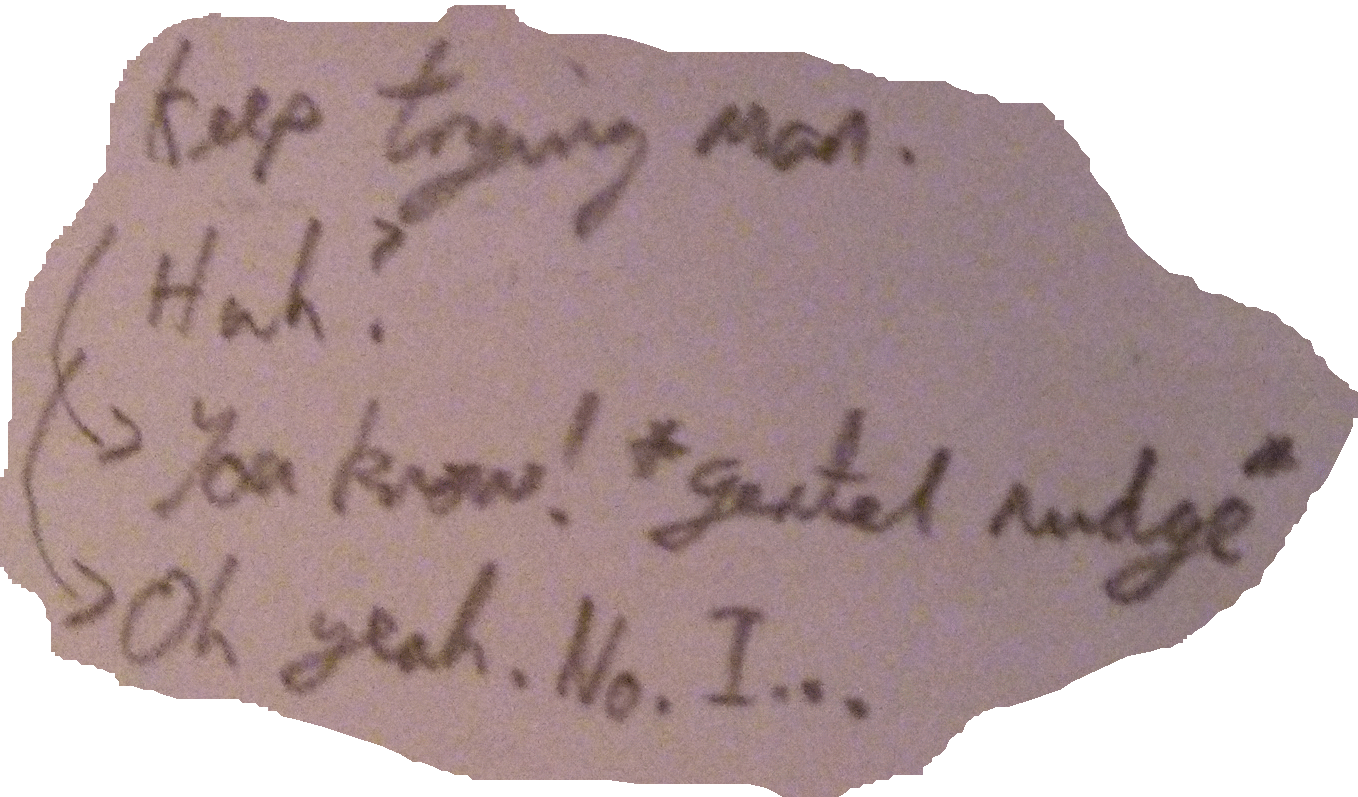 Keep trying man.
Huh?
> You know! *gentel nudge*
> Oh yeah. No. I...